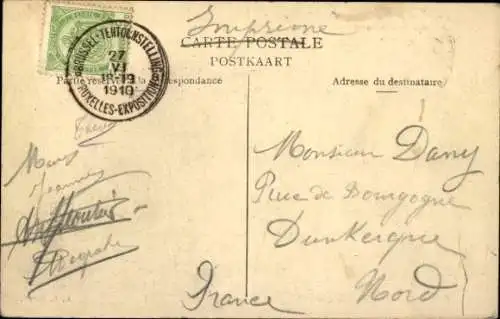 Imprimé
CARTE POSTALE
POSTKAART
BRUSSEL-TENTOONSTELLING
27
VI
18-19
1910
BRUXELLES-EXPOSITION
Partie réservée à la correspondance
Adresse du destinataire
Monsieur Dany
Rue de Bourgogne
Dunkerque
Nord
France